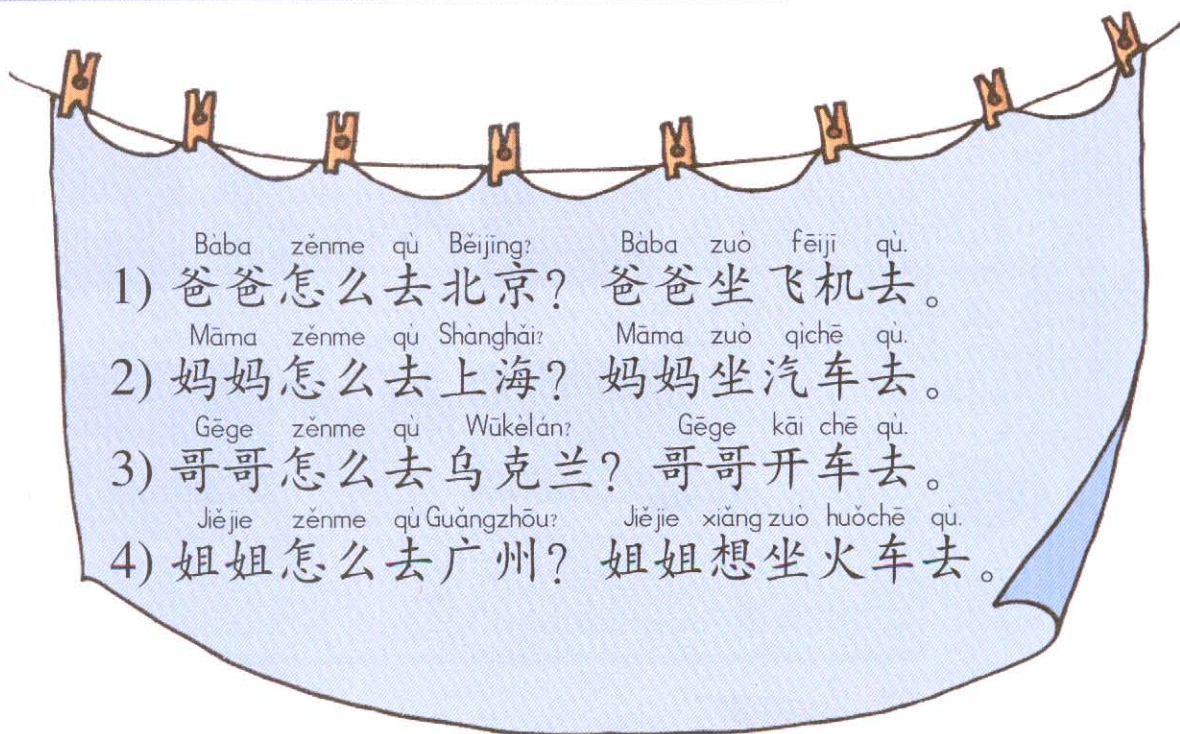 Bàba zěnme qù Běijīng? Bàba zuò fēijī qù.
1) 爸爸怎么去北京? 爸爸坐飞机去。
Māma zěnme qù Shànghǎi? Māma zuò qìchē qù.
2) 妈妈怎么去上海? 妈妈坐汽车去。
Gēge zěnme qù Wūkèlán? Gēge kāi chē qù.
3) 哥哥怎么去乌克兰? 哥哥开车去。
Jiějie zěnme qù Guǎngzhōu? Jiějie xiǎng zuò huǒchē qù.
4) 姐姐怎么去广州? 姐姐想坐火车去。